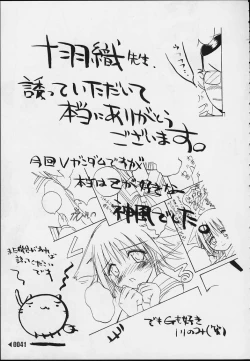 十羽織先生、
誘っていただいて
本当にありがとう
ございます。
今回Vガンダムですが
本当はGが好きな
神風でした
でもGも好き
また機会があれば
誘ってください
です
◀0041